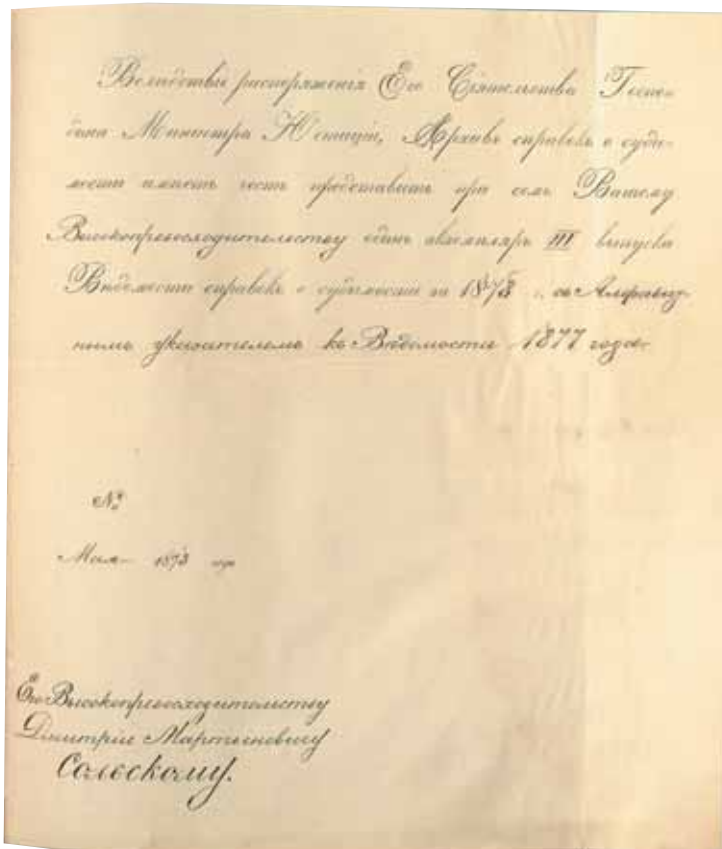 Вслѣдствіе распоряженія Его Сіятельства Госпо-
дина Министра Юстиціи, Архивъ справокъ о суди-
мости имѣетъ честь представить при семъ Вашему
Высокопревосходительству одинъ экземпляръ III выпуска
Вѣдомости справокъ о судимости за 1878 г. съ Алфавит-
нымъ указателемъ къ Вѣдомости 1877 года.
№
Мая 1878 года
Его Высокопревосходительству
Дмитрію Мартыновичу
Сольскому.